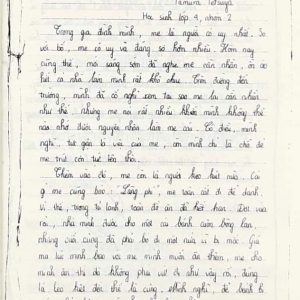 Tamura Tetsuya
Học sinh lớp 4, nhóm 2
Trong gia đình mình, mẹ là người có uy nhất. So
với bố, mẹ có uy và đáng sợ hơn nhiều. Hôm nay
cũng thế, mới sáng sớm đã nghe mẹ cằn nhằn, ồn ào
hết cả nhà làm mình rất khó chịu. Trên đường đến
trường, mình đã nghĩ xem tại sao mẹ lại cằn nhằn
như thế nhưng mẹ nói rất nhiều khiến mình không thể
nào nhớ được nguyên nhân làm mẹ cáu. Có điều, mình
nghĩ, tức giận là việc của mẹ, còn mình chỉ là chỗ để
mẹ trút cơn tức lên thôi.
Thêm vào đó, mẹ còn là người keo kiệt nữa. Cái
gì mẹ cũng bảo "Lãng phí", mẹ toàn cất đi để dành.
Vì thế, trong tủ lạnh, toàn đồ ăn đã hết hạn. Đợt vừa
rồi, nhà mình được cho một cái bánh cuộn bông lan
nhưng cuối cùng đã phải bỏ đi một nửa vì bị mốc. Giá
mà lúc mình bảo với mẹ mình muốn ăn thêm, mẹ cho
mình ăn thì đã không phải vứt đi như vậy rồi, đúng
là keo kiệt đến thế là cùng.